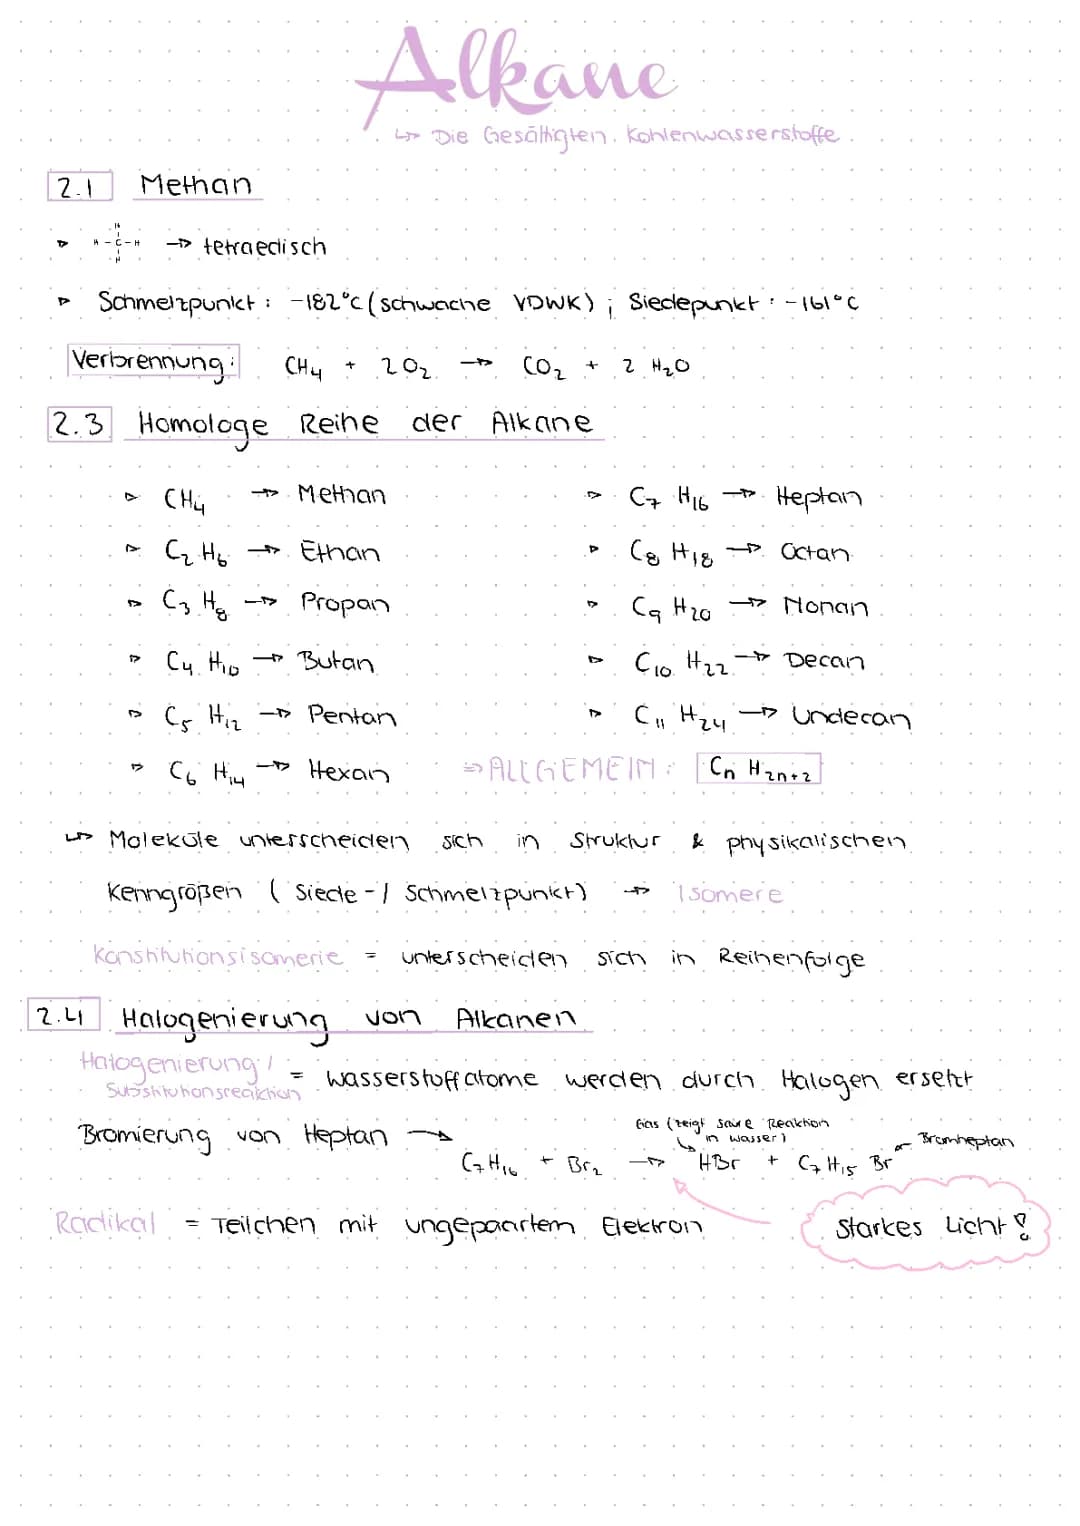 Alkane
↳ Die Gesättigten Kohlenwasserstoffe
2.1 Methan
H
H - C - H → tetraedisch
H
Schmelzpunkt : -182°C (schwache VDWK) ; Siedepunkt : -161°C
Verbrennung: CH₄ + 2 O₂ → CO₂ + 2 H₂O
2.3 Homologe Reihe der Alkane
CH₄ → Methan
C₂H₆ → Ethan
C₃H₈ → Propan
C₄H₁₀ → Butan
C₅H₁₂ → Pentan
C₆H₁₄ → Hexan
C₇H₁₆ → Heptan
C₈H₁₈ → Octan
C₉H₂₀ → Nonan
C₁₀H₂₂ → Decan
C₁₁H₂₄ → Undecan
⇒ ALLGEMEIN: CₙH₂ₙ₊₂
↳ Moleküle unterscheiden sich in Struktur & physikalischen
Kenngrößen ( Siede-/ Schmelzpunkt) → Isomere
Konstitutionsisomerie = unterscheiden sich in Reihenfolge
2.4 Halogenierung von Alkanen
Halogenierung /
Substitutionsreaktion = Wasserstoffatome werden durch Halogen ersetzt
Gas (zeigt saure Reaktion
in Wasser)
Bromheptan
Bromierung von Heptan →
C₇H₁₆ + Br₂ → HBr + C₇H₁₅Br
Radikal = Teilchen mit ungepaartem Elektron
Starkes Licht!